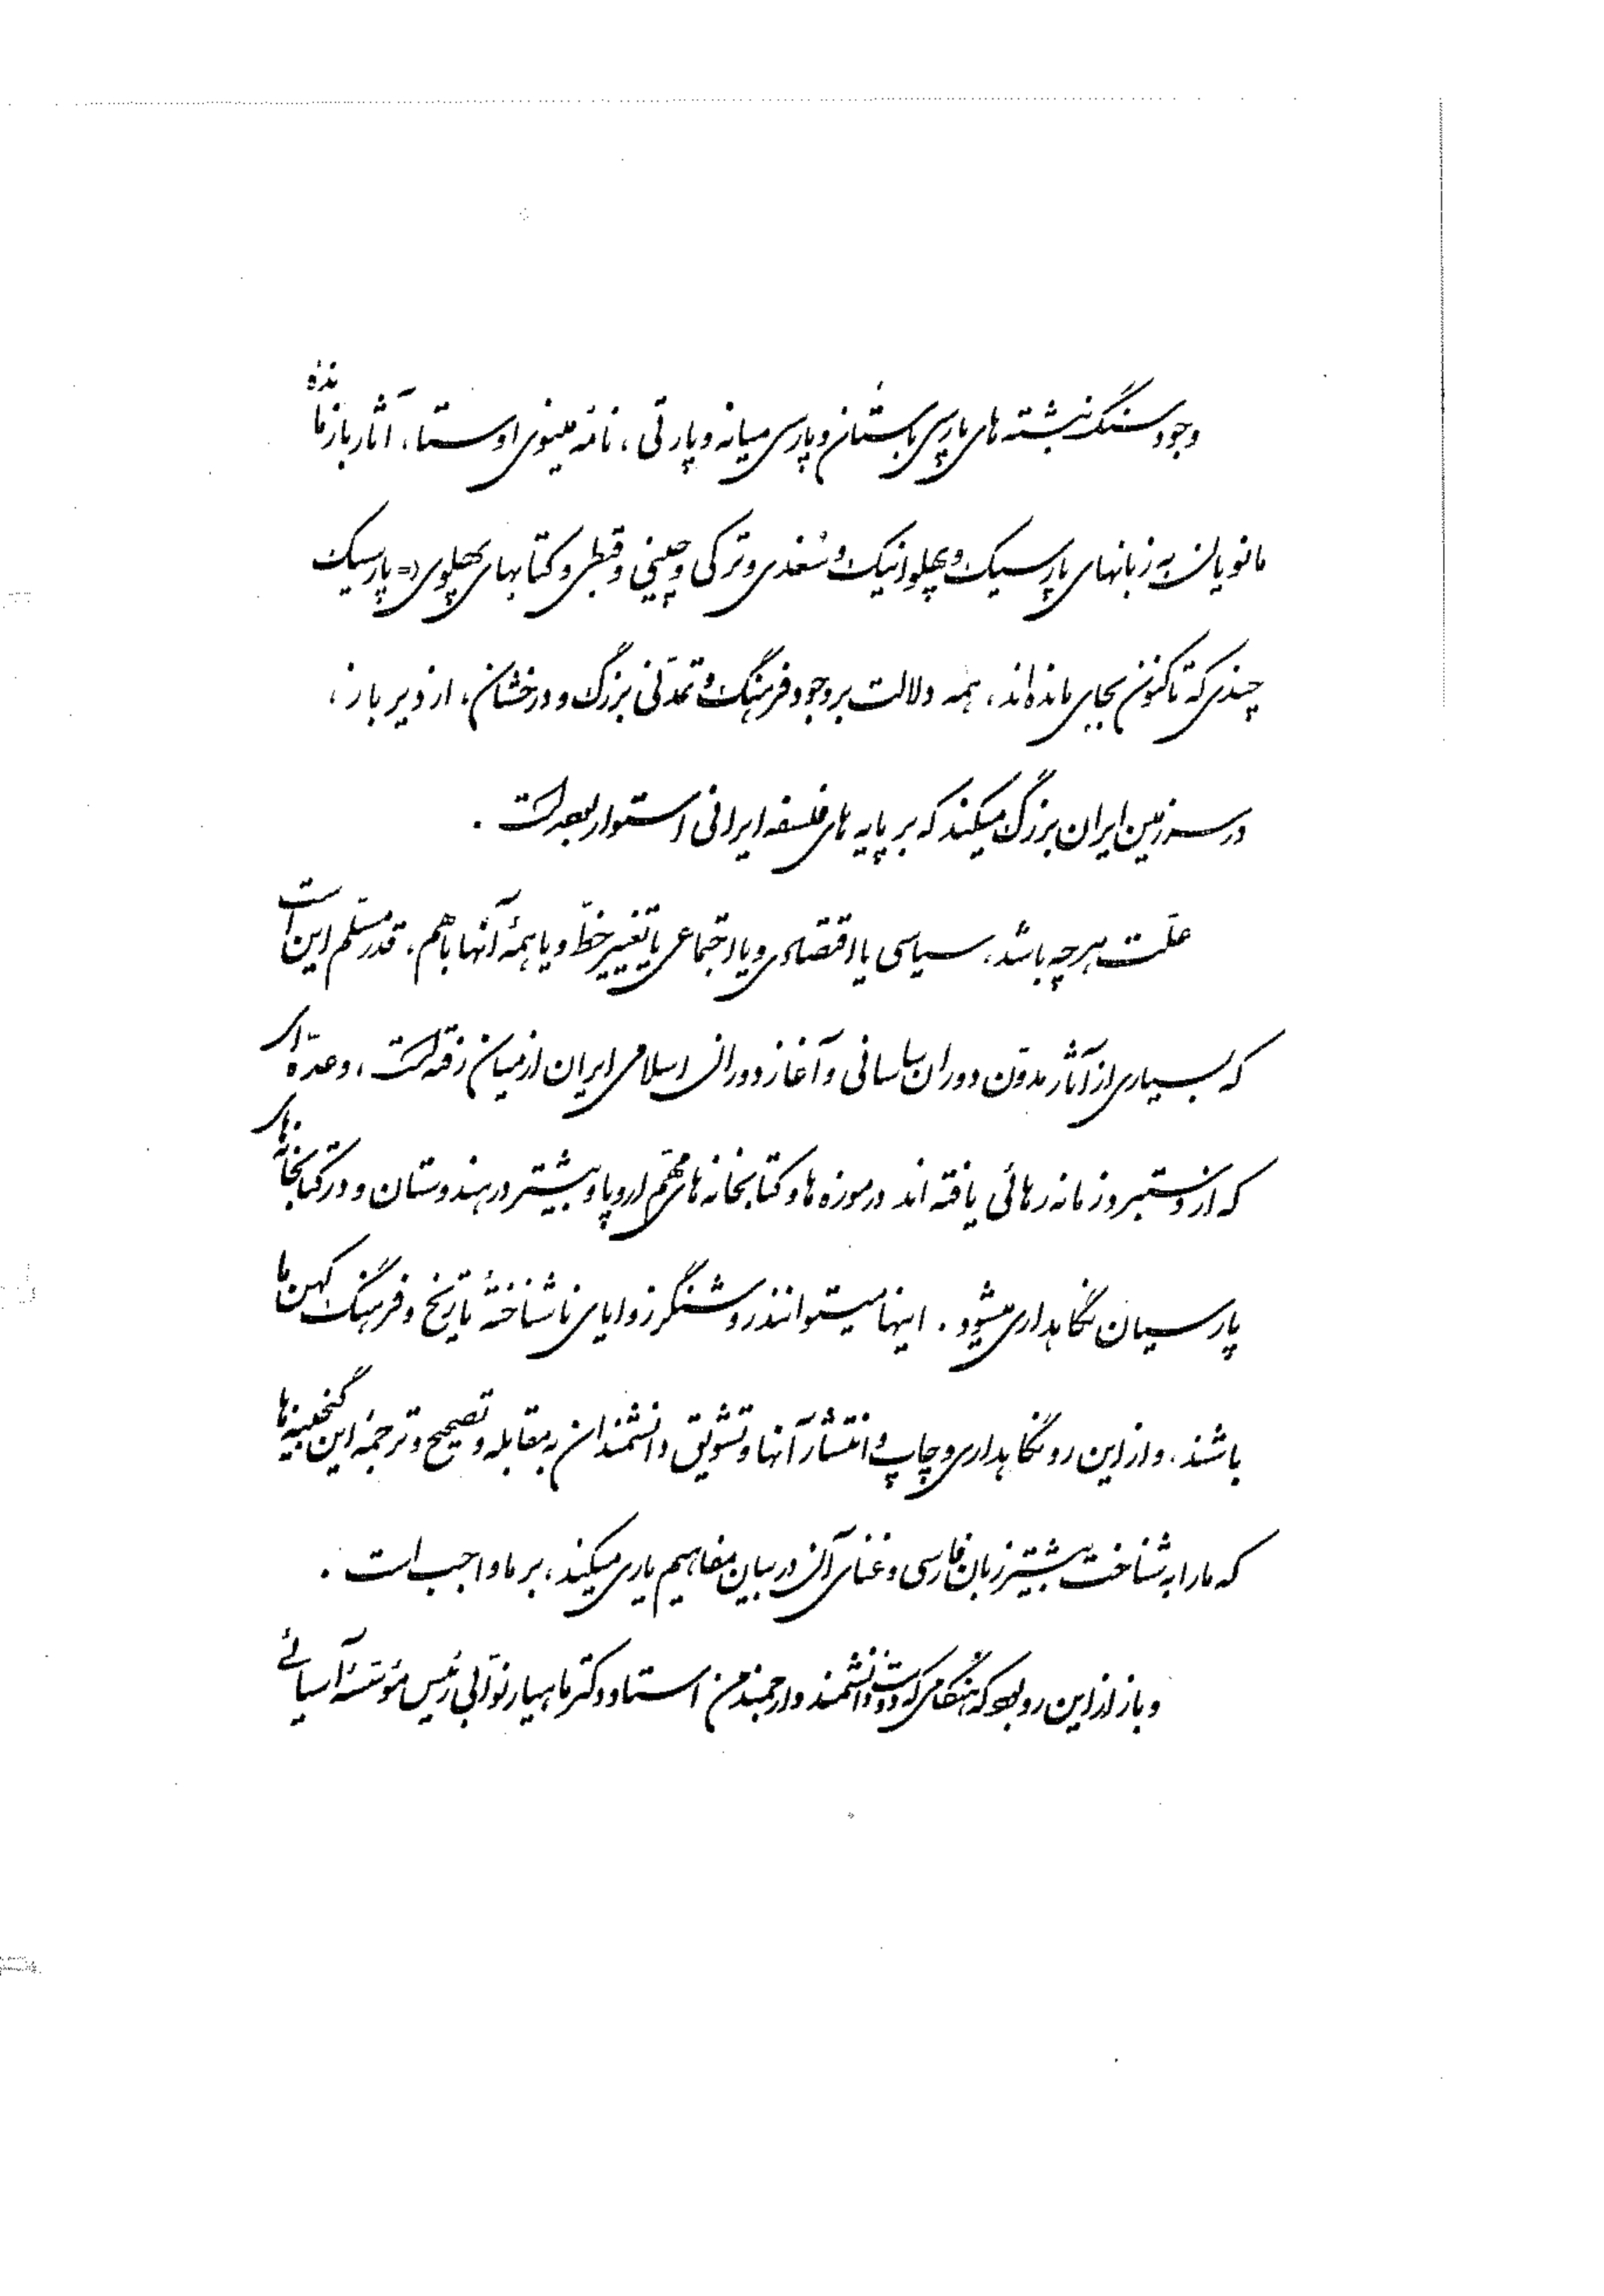 وجود سنگ نبشته های پارسی باستان و پارسی میانه و پارتی ، نامهٔ مینوی اوستا ، آثار بازمانده
مانویان به زبانهای پارسیک و پهلوانیک و سغدی و ترکی و چینی و قبطی و کتابهای پهلوی (= پارسیک
چندی که تاکنون بجای مانده‌اند ، همه دلالت بر وجود فرهنگ و تمدّنی بزرگ و درخشان ، از دیر باز ،
در سرزمین ایران بزرگ میکند که بر پایه های فلسفه ایرانی استوار بوده است .
علّت هر چه باشد ، سیاسی یا اقتصادی و یا اجتماعی یا تغییر خطّ و یا همهٔ آنها با هم ، قدر مسلّم این است
که بسیاری از آثار مدوّن دوران ساسانی و آغاز دوران اسلامی ایران از میان رفته است ، و عدّه‌ای
که از دستبرد زمانه رهائی یافته اند در موزه ها و کتابخانه های مهّم اروپا و بیشتر در هندوستان و در کتابخانه‌های
پارسیان نگاهداری میشود . اینها میتوانند روشنگر زوایای ناشناختهٔ تاریخ و فرهنگ کهن ما
باشند ، و از این رو نگاهداری و چاپ و انتشار آنها و تشویق دانشمندان به مقابله و تصحیح و ترجمهٔ این گنجینه‌ها
که ما را به شناخت بیشتر زبان فارسی و غنای آن در بیان مفاهیم یاری میکند ، بر ما واجب است .
و باز از این رو بود که هنگامی که دوست دانشمند و ارجمند من استاد دکتر ماهیار نوّابی رئیس مؤسّسهٔ آسیائی